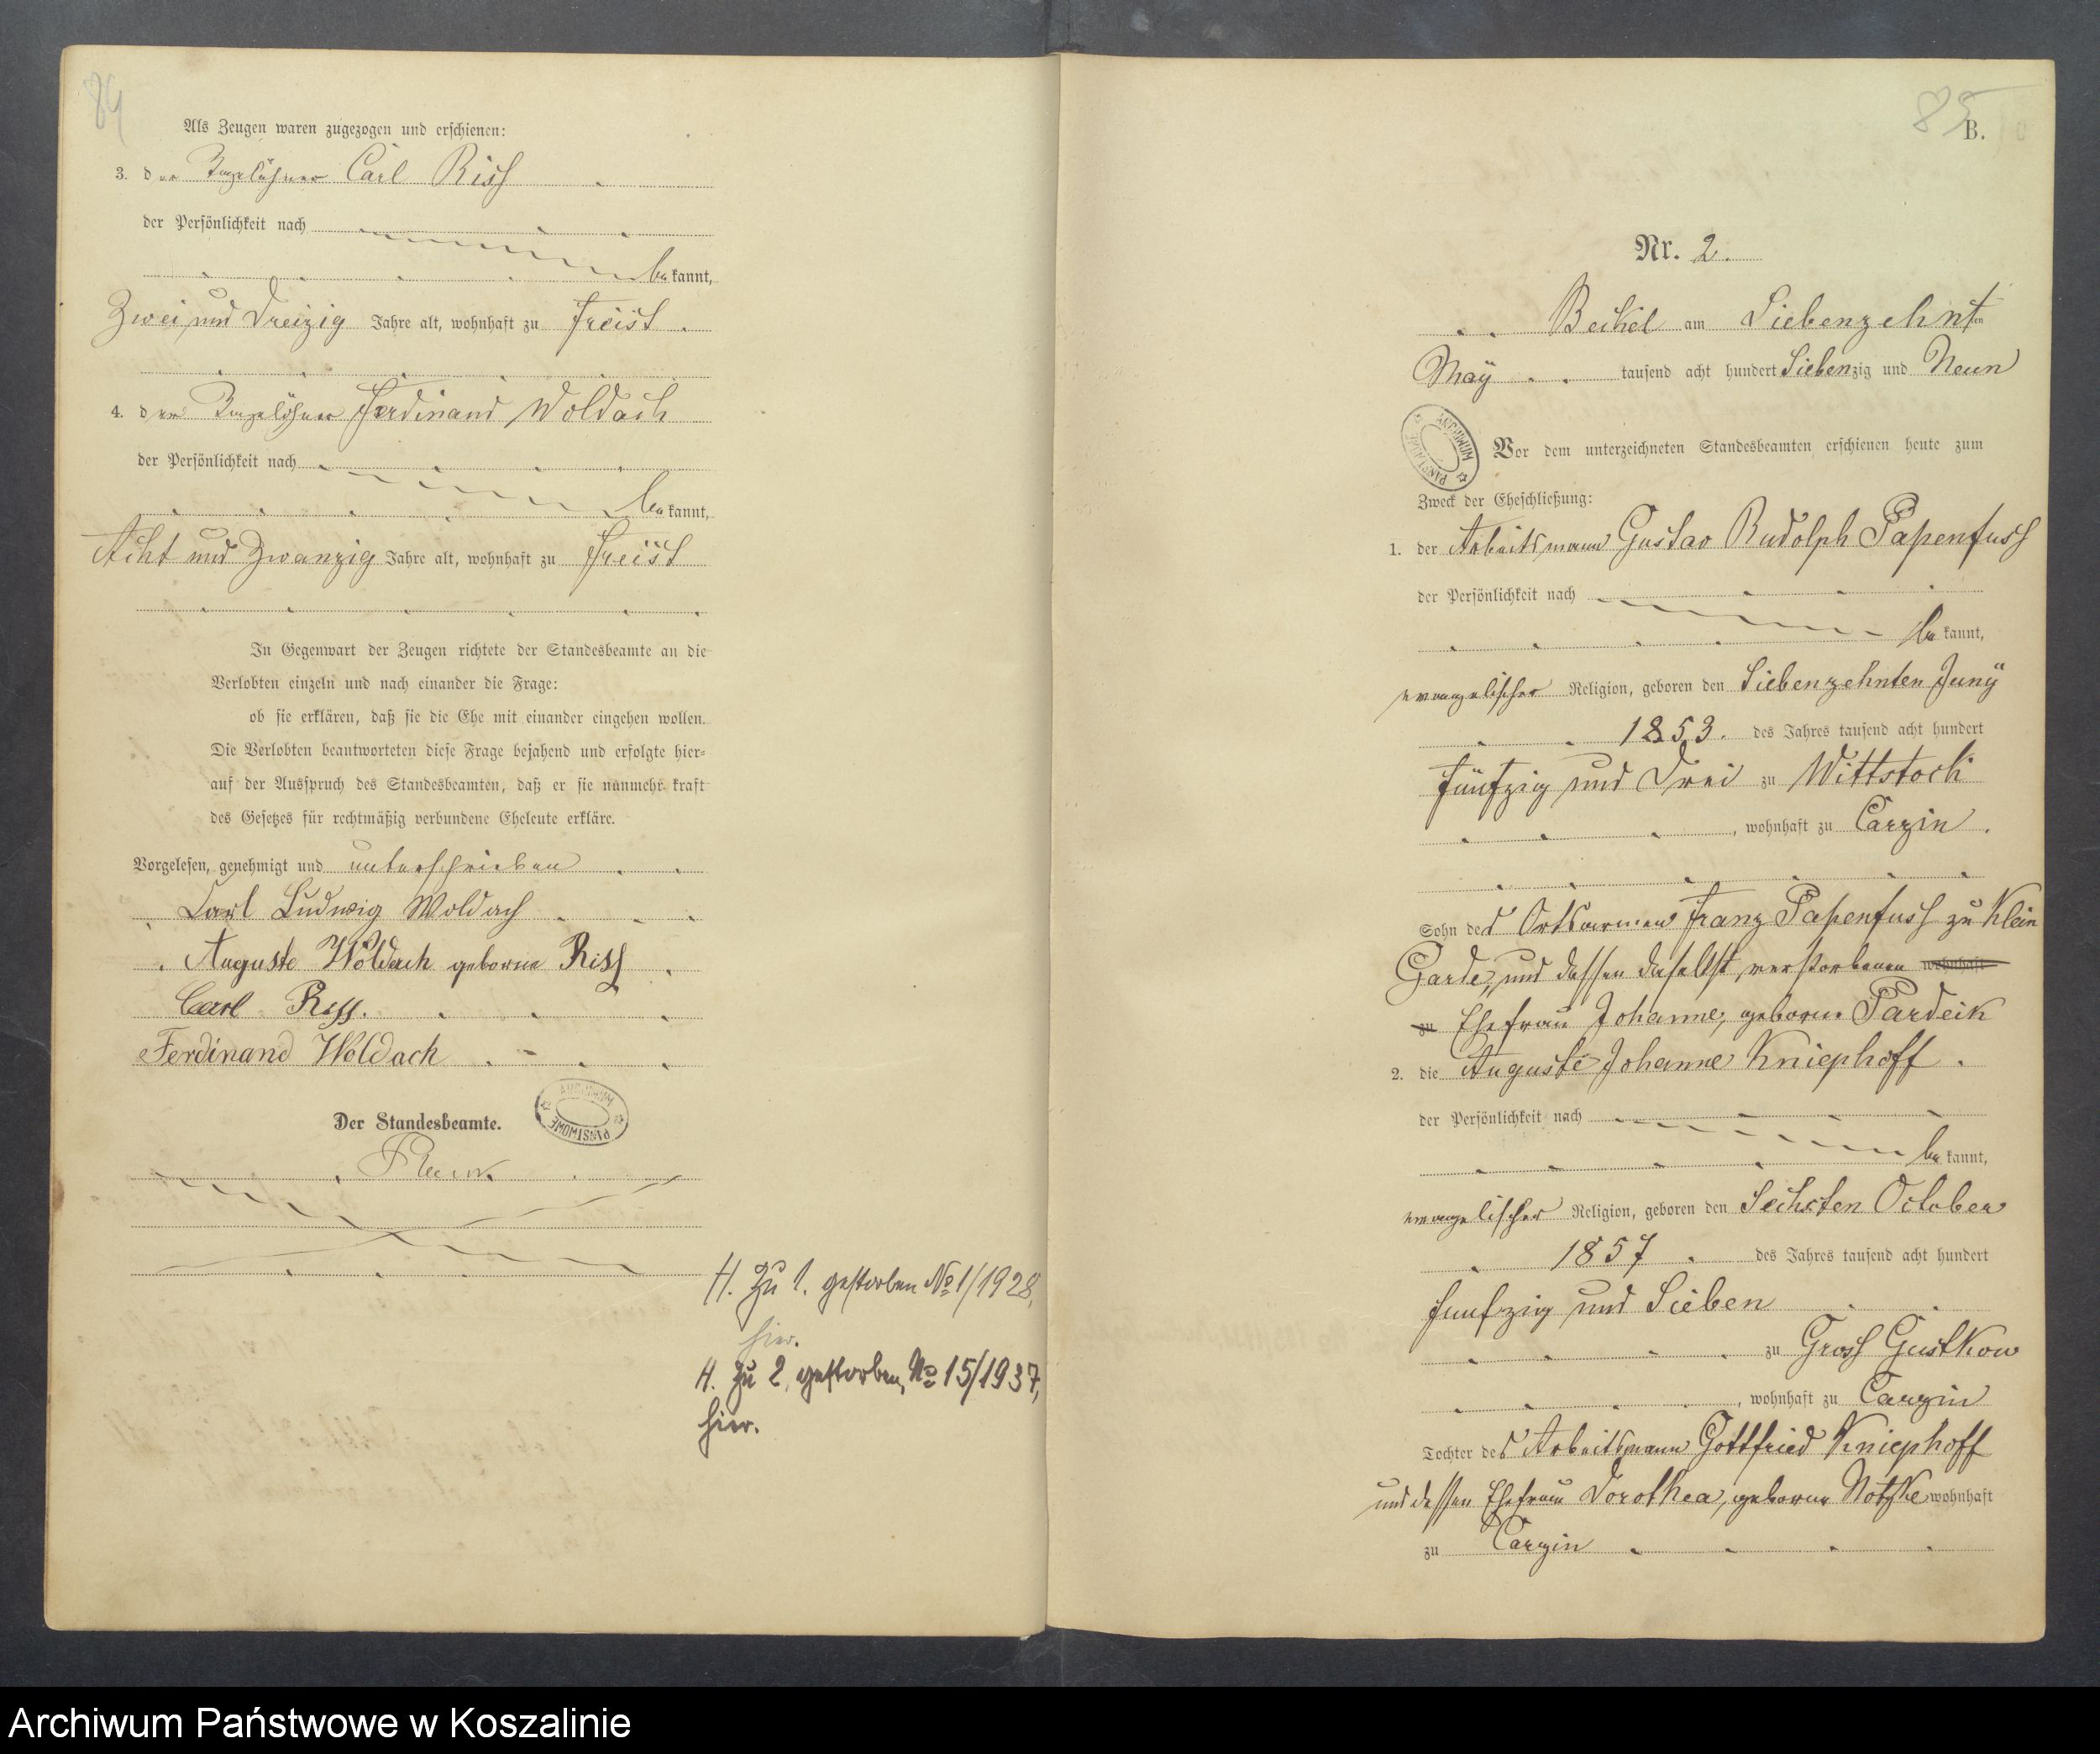 84
Als Zeugen waren zugezogen und erschienen:
3. der Tagelöhner Carl Riss
der Persönlichkeit nach
bekannt,
Zwei und Dreizig Jahre alt, wohnhaft zu Freist.
4. der Tagelöhner Ferdinand Woldach
der Persönlichkeit nach
bekannt,
Acht und Zwanzig Jahre alt, wohnhaft zu Freist
In Gegenwart der Zeugen richtete der Standesbeamte an die
Verlobten einzeln und nach einander die Frage:
ob sie erklären, daß sie die Ehe mit einander eingehen wollen.
Die Verlobten beantworteten diese Frage bejahend und erfolgte hier-
auf der Ausspruch des Standesbeamten, daß er sie nunmehr kraft
des Gesetzes für rechtmäßig verbundene Eheleute erkläre.
Vorgelesen, genehmigt und unterschrieben
Carl Ludwig Woldach
Auguste Woldach geborne Riss
Carl Riss.
Ferdinand Woldach
Der Standesbeamte.
ARCHIWUM PAŃSTWOWE
H. Zu 1. gestorben No 1/1928,
hier.
H. Zu 2. gestorben, No 15/1937,
hier.
85
B.
Nr. 2.
Beckel am Siebenzehnten
May tausend acht hundert Siebenzig und Neun
ARCHIWUM PAŃSTWOWE
Vor dem unterzeichneten Standesbeamten erschienen heute zum
Zweck der Eheschließung:
1. der Arbeitsmann Gustav Rudolph Papenfuss
der Persönlichkeit nach
bekannt,
evangelischer Religion, geboren den Siebenzehnten Juny
1853. des Jahres tausend acht hundert
fünfzig und Drei zu Wittstock
, wohnhaft zu Carzin.
Sohn des Ortsarmen Franz Papenfuss zu Klein
Garde, und dessen daselbst verstorbenen wohnhaft
zu Ehefrau Johanne, geborne Pardeik
2. die Auguste Johanne Kniephoff.
der Persönlichkeit nach
bekannt,
evangelischer Religion, geboren den Sechsten October
1857. des Jahres tausend acht hundert
fünfzig und Sieben
zu Gross Gustkow
, wohnhaft zu Carzin
Tochter des Arbeitsmann Gottfried Kniephoff
und dessen Ehefrau Dorothea, geborne Notzke wohnhaft
zu Carzin
Archiwum Państwowe w Koszalinie